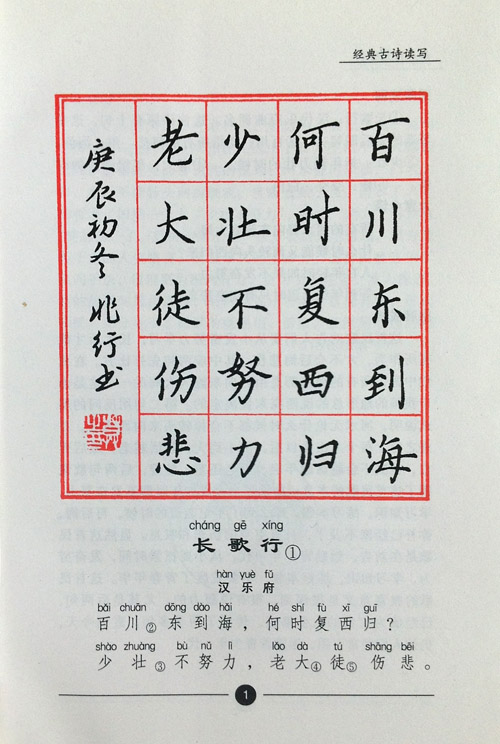 经典古诗读写
百川东到海
何时复西归
少壮不努力
老大徒伤悲
庚辰初冬 行书
cháng gē xíng
长歌行①
hàn yuè fǔ
汉乐府
bǎi chuān dōng dào hǎi hé shí fù xī guī
百川②东到海，何时复西归？
shào zhuàng bù nǔ lì lǎo dà tú shāng bēi
少壮③不努力，老大④徒⑤伤悲。
1